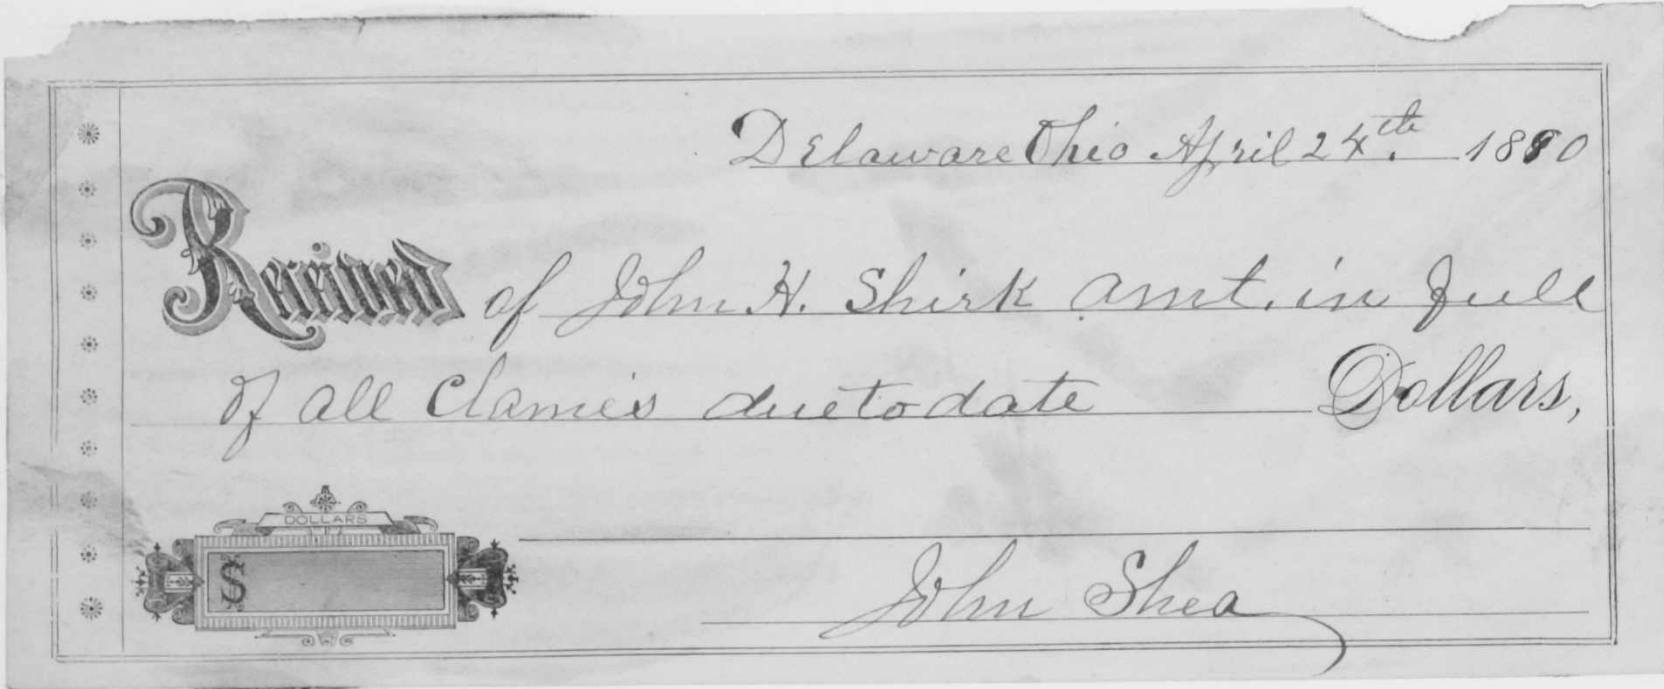 Delaware Ohio April 24th. 1880
Received of John H. Shirk amt. in full
of all Clamies due to date Dollars,
DOLLARS
$
John Shea